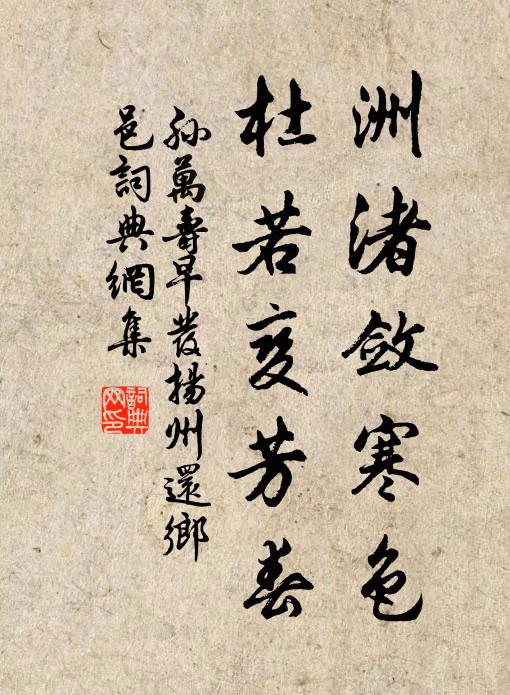 洲渚斂寒色
杜若变芳春
孫萬壽早發揚州還鄉
邑詞典網集
詞典网印